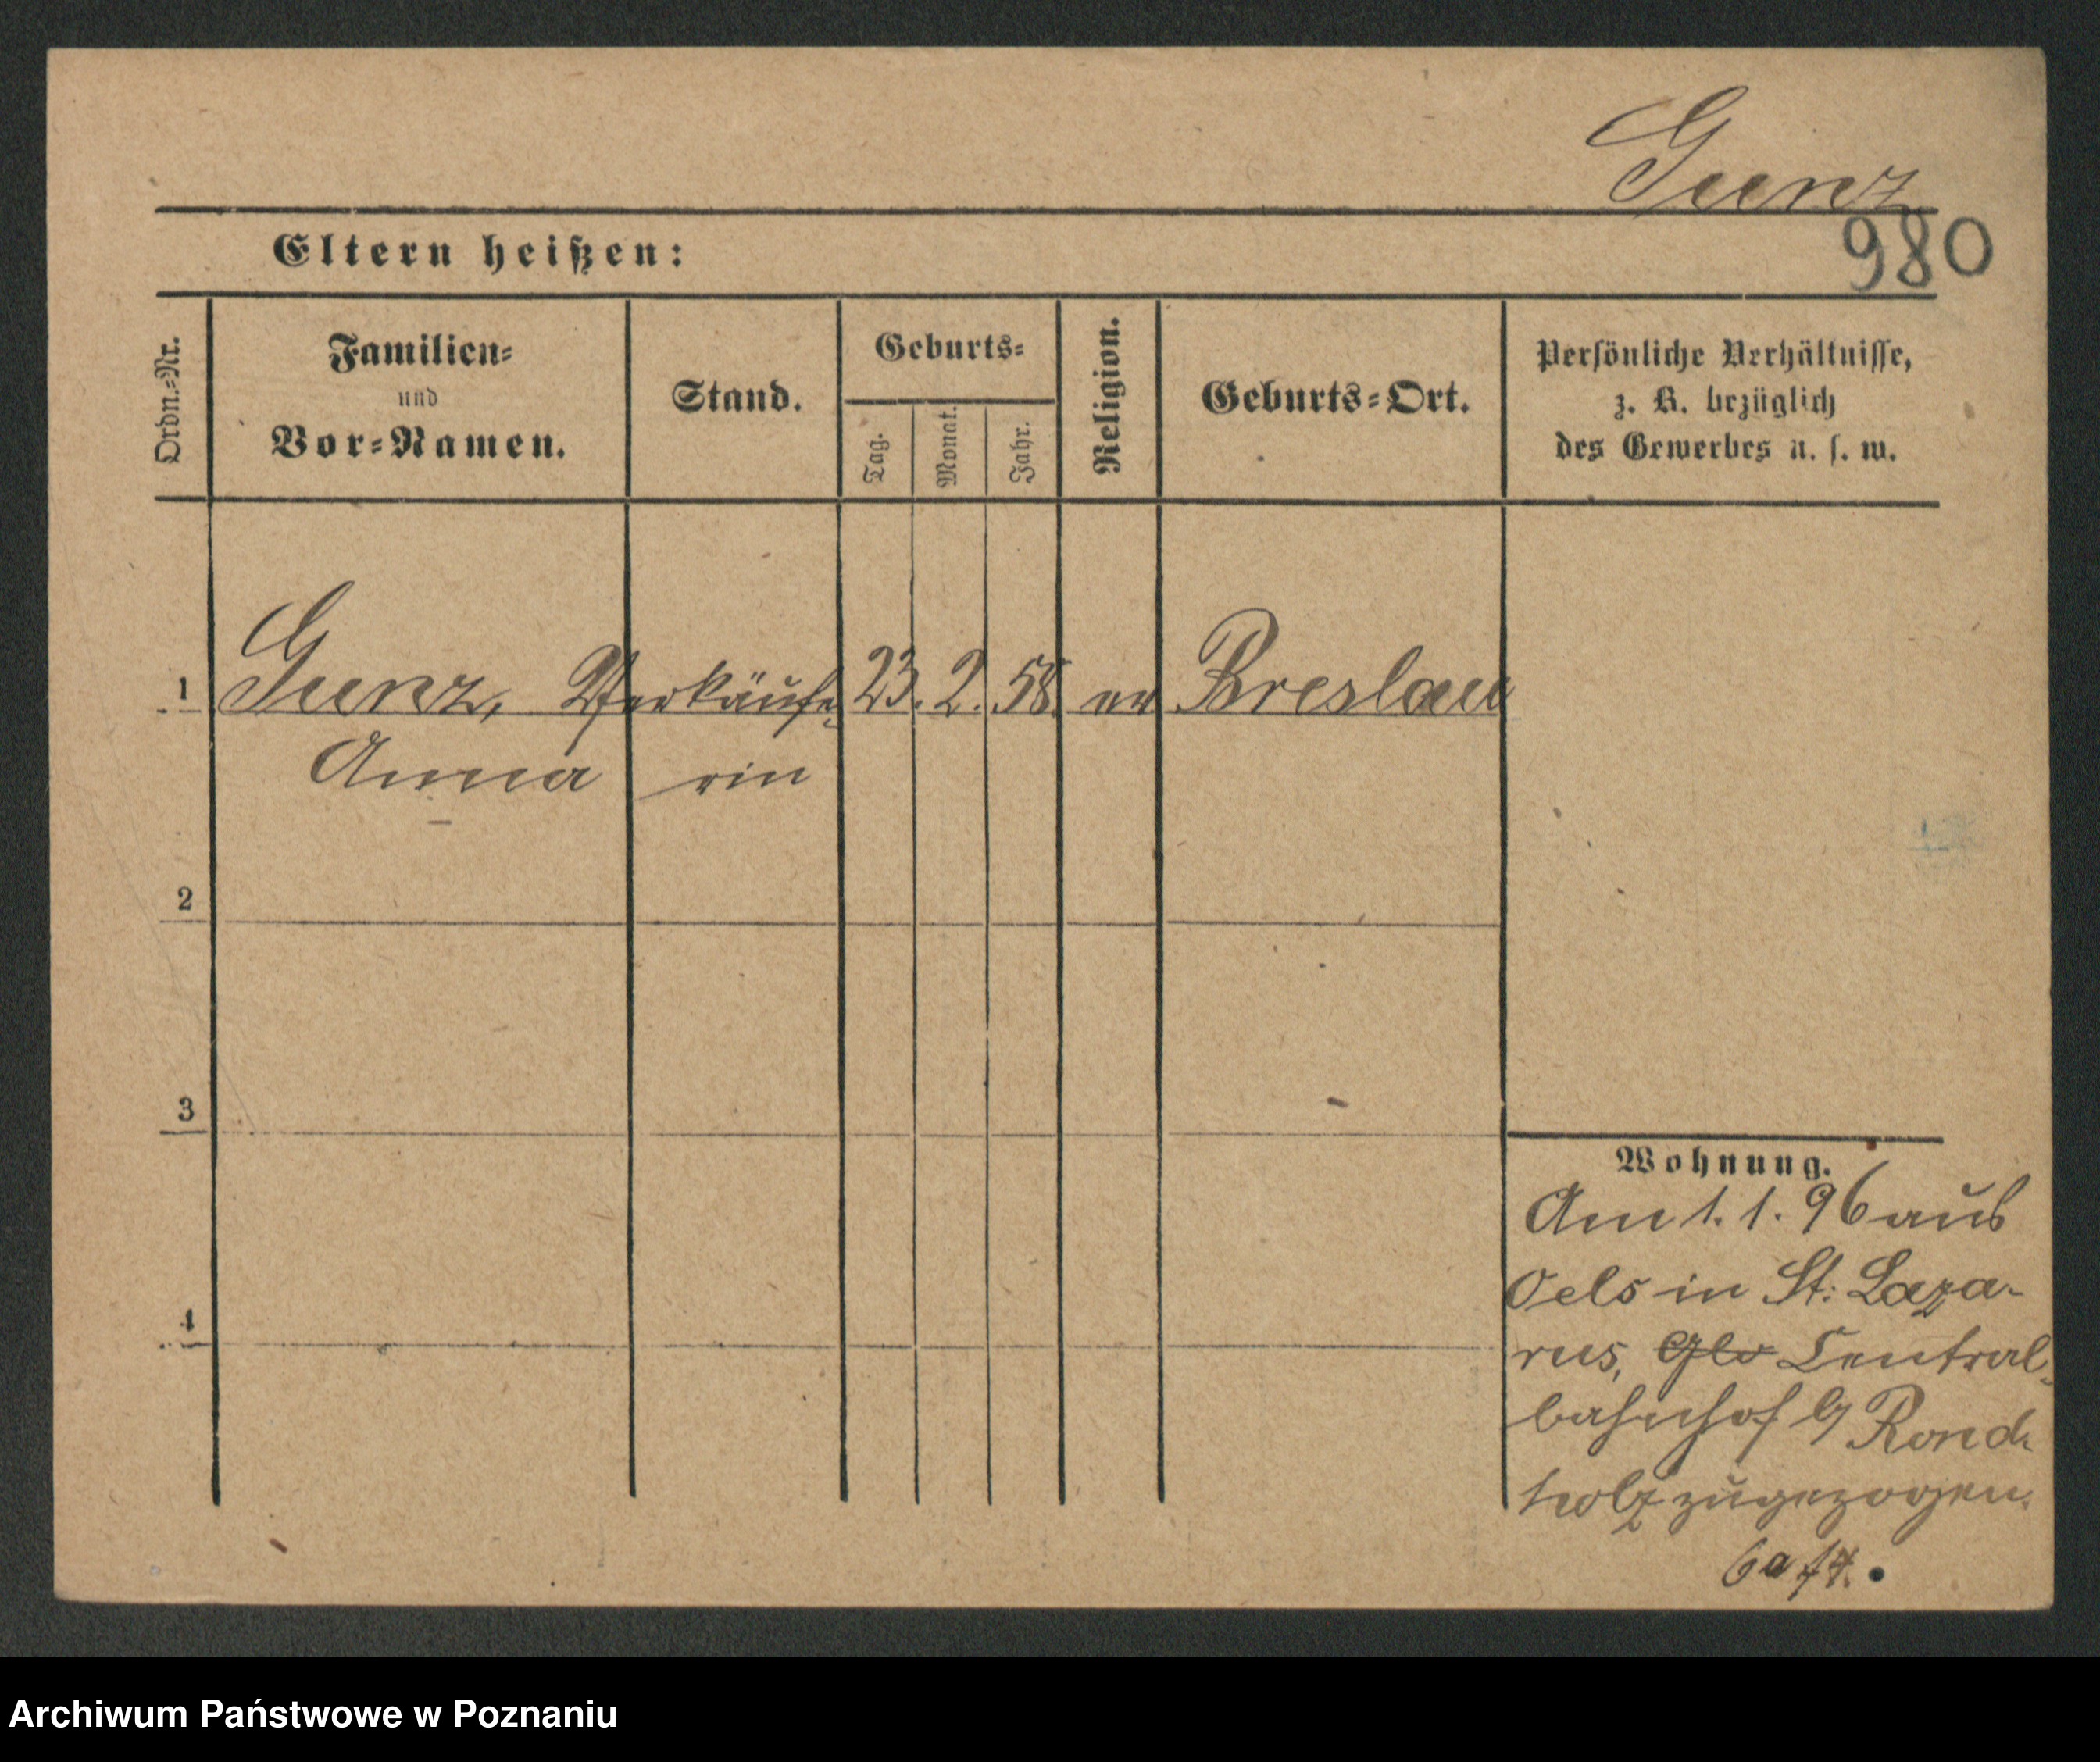 Gunz
980
Eltern heißen:
Ordn.=Nr.
Familien=
und
Vor=Namen.
Stand.
Geburts=
Tag.
Monat.
Jahr.
Religion.
Geburts=Ort.
Persönliche Verhältnisse,
z. B. bezüglich
des Gewerbes u. s. w.
1 Gunz, Verkäufe- 23. 2. 58. ev Breslau
Anna rin
2
3
4
Wohnung.
Am 1. 1. 96 aus
Oels in St: Laza-
rus, Glo Central-
bahnhof b/ Rond-
holz zugezogen.
Archiwum Państwowe w Poznaniu